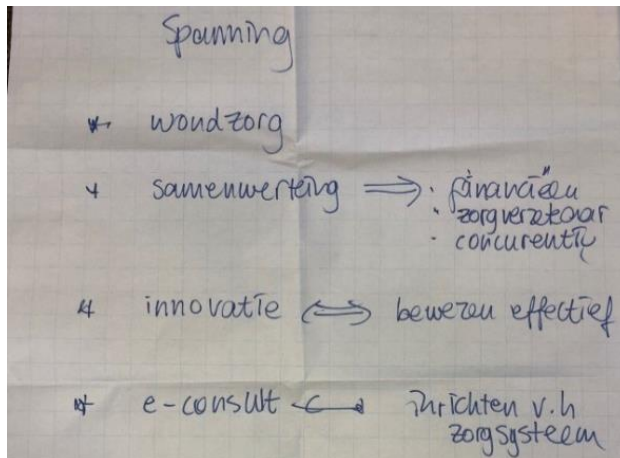 Spanning
* wondzorg
* samenwerking ⇒ · financieel
· zorgverzekeraar
· concurentie
* innovatie ⇔ bewezen effectief
* e-consult ↔ inrichten v.h
zorgsysteem